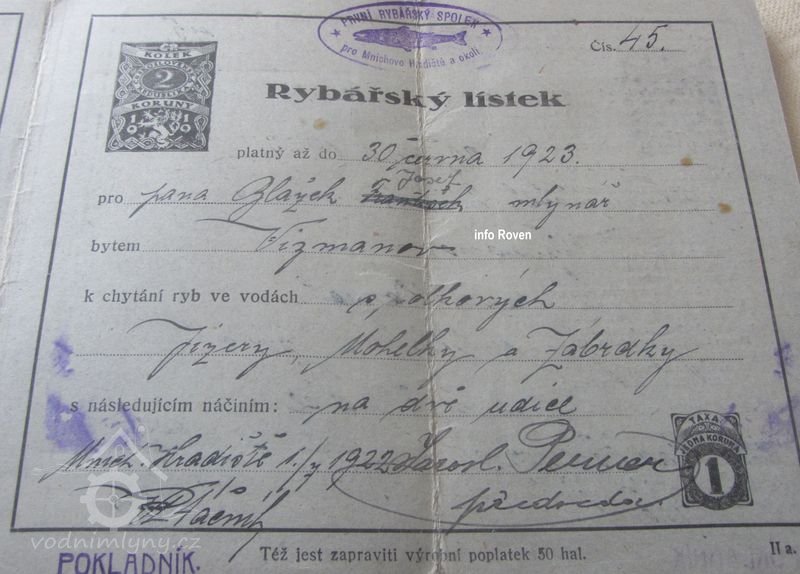 PRVNÍ RYBÁŘSKÝ SPOLEK
pro Mnichovo Hradiště a okolí
Čís. 45.
KOLEK
2
KORUNY
1919
Rybářský lístek
platný až do 30 června 1923.
Josef
pro pana Blažek František mlynář
bytem Vizmanov
info Roven
k chytání ryb ve vodách spolkových
Jizery, Mohelky a Zábrdky
s následujícím náčiním: na dvě udice
TAXA
JEDNA KORUNA
1
Mnich. Hradiště 1./7 1922 Jarosl.
předseda.
vodnimlyny.cz
POKLADNÍK.
Též jest zapraviti výrobní poplatek 50 hal.
II a.